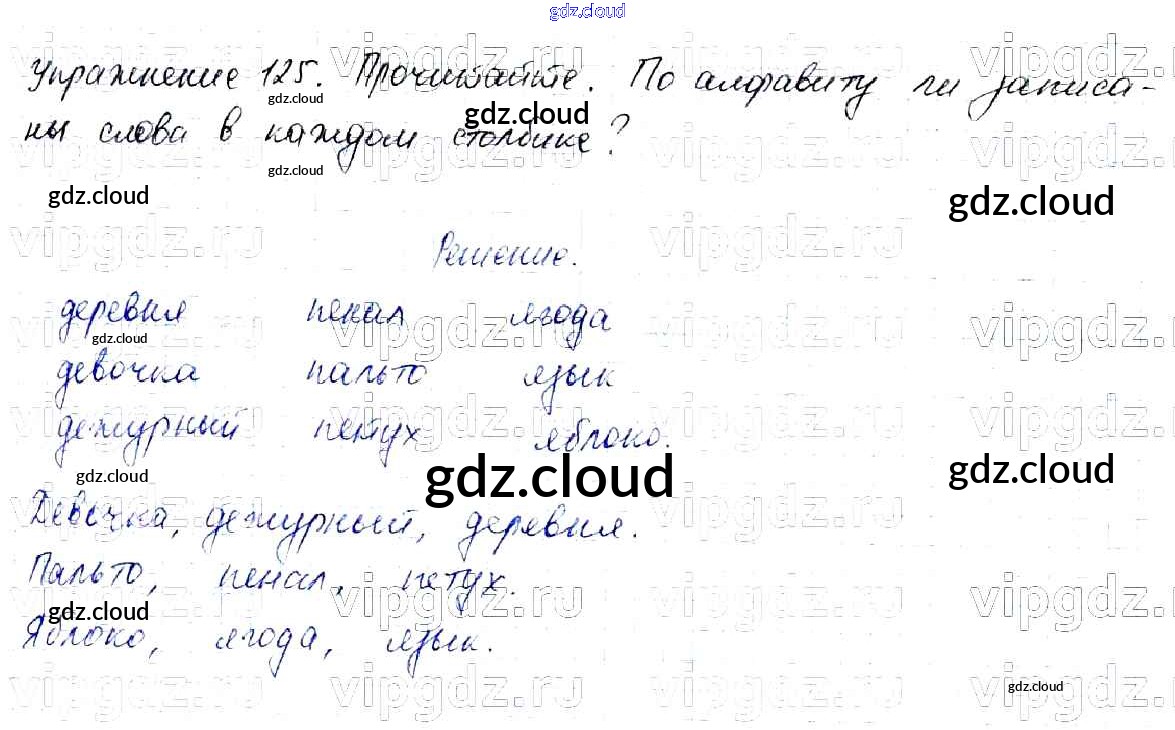 gdz.cloud
Упражнение 125. Прочитайте. По алфавиту ли записа-
ны слова в каждом столбике?
gdz.cloud
gdz.cloud
gdz.cloud
gdz.cloud
gdz.cloud
vipgdz.ru vipgdz.ru vipgdz.ru vipgdz.ru
Решение.
деревня пенал ягода
gdz.cloud
девочка пальто язык
дежурный петух яблоко.
gdz.cloud
gdz.cloud
gdz.cloud
Девочка, дежурный, деревня.
Пальто, пенал, петух.
gdz.cloud
Яблоко, ягода, язык.
gdz.cloud